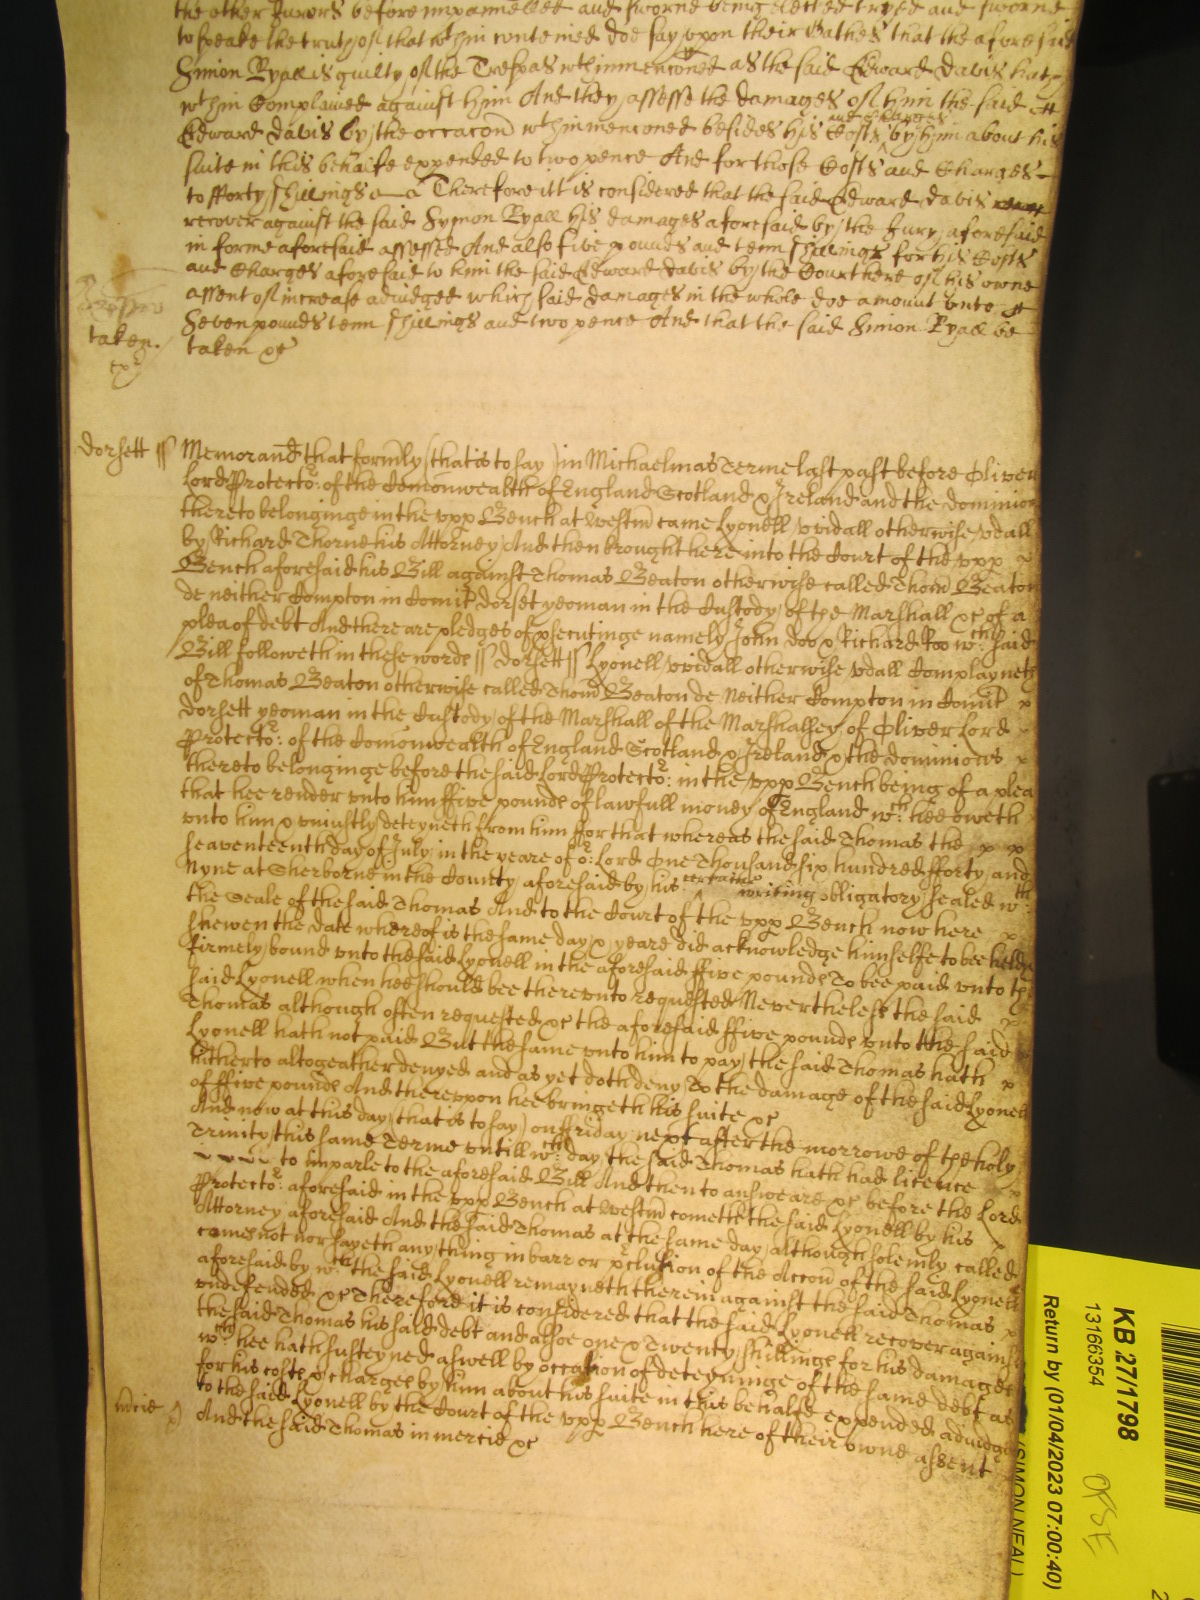 the other Jurors before impannelled and sworne being elected tryed and sworne
to speake the truth of that wthin conteined doe say upon their Oathes that the aforesaid
Simon Ryall is guilty of the Trespas wthinmenconed as the said Edward Davis hath
wthin Complained against him And they assesse the damages of him the said
Edward Davis by the occacon wthinmenconed besides his Costs and Charges by him about his
suite in this behalfe expended to two pence And for those Costs and Charges
to fforty shillings Therefore itt is considered that the said Edward Davis
recover against the said Symon Ryall his damages aforesaid by the Jury aforesaid
in forme aforesaid assessed And also five pounds and tenn shillings for his Costs
and Charges aforesaid to him the said Edward Davis by the Court here of his owne
assent of increase adiudged which said damages in the whole doe amount unto
Seven pounds tenn shillings and two pence And that the said Simon Ryall be
taken &c
taken.
Dorsett ss Memorand that formly (that is to say) in Michaelmas Terme last past before Oliver
Lord Protector: of the Comonwealth of England Scotland & Ireland and the dominions
thereto belonginge in the upp Bench at Westm came Lyonell Uvidall otherwise Udall
by Richard Thorne his Attorney And then brought here into the Court of the upp
Bench aforesaid his Bill against Thomas Beaton otherwise called Thom Beaton
de neither Compton in Comit Dorset yeoman in the Custody of the Marshall &c of a
plea of debt And there are pledges of psecutinge namely John Doo & Richard Roo wch said
Bill followeth in these words ss Dorsett ss Lyonell Uvidall otherwise Udall Complayneth
of Thomas Beaton otherwise called Thom Beaton de Neither Compton in Comit
Dorsett yeoman in the Custody of the Marshall of the Marshalsey of Oliver Lord
Protector: of the Comonwealth of England Scotland & Ireland & the dominions
thereto belonginge before the said Lord Protector: in the upp Bench being of a plea
that hee render unto him ffive pounds of lawfull money of England wch: hee oweth
unto him & uniustly deteyneth from him ffor that whereas the said Thomas the
seaventeenth day of July in the yeare of or: Lord One Thousand six hundred fforty and
Nyne at Sherborne in the County aforesaid by his certaine writing obligatory sealed wth:
the Seale of the said Thomas And to the Court of the upp Bench now here
shewen the date whereof is the same day & yeare did acknowledge himselfe to bee holden
firmely bound unto the said Lyonell in the aforesaid ffive pounds To bee paid unto the
said Lyonell when hee should bee thereunto requested Nevertheless the said
Thomas although often requested &c the aforesaid ffive pounds unto the said
Lyonell hath not paid But the same unto him to pay the said Thomas hath
hitherto altogeather denyed and as yet doth deny To the damage of the said Lyonell
of ffive pounds And thereupon hee bringeth his suite &c
And now at this day (that is to say) on ffriday next after the morrowe of the holy
Trinity this same Terme untill wch: day the said Thomas hath had licence
to imparle to the aforesaid Bill And then to answeare &c before the Lord
Protector: aforesaid in the upp Bench at Westm cometh the said Lyonell by his
Attorney aforesaid And the said Thomas at the same day although solemly called
comes not nor sayeth any thing in barr or pclusion of the Accon of the said Lyonell
aforesaid by wch: the said Lyonell remayneth therein against the said Thomas
undefended &c Therefore it is considered that the said Lyonell recover against
the said Thomas his said debt and alsoe one & Twenty shillings for his damages
wch hee hath susteyned aswell by occasion of deteyninge of the same debt as
for his costs & charges by him about his suite in this behalfe expended adiudged
to the said Lyonell by the Court of the upp Bench here of their owne assent
mcie And the said Thomas in mercie &c
KB 27/1798
13166354
Return by (01/04/2023 07:00:40)
(SIMON NEAL)